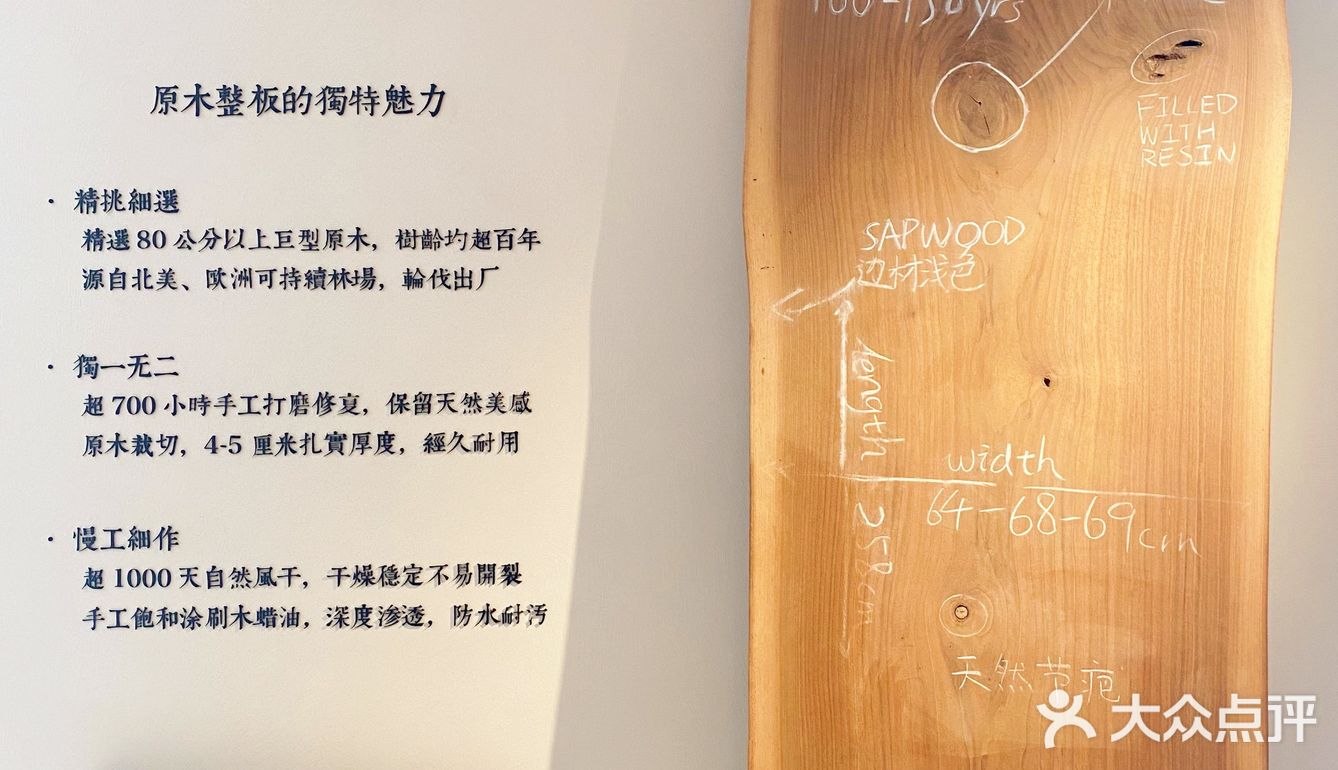 原木整板的獨特魅力
· 精挑細選
精選 80 公分以上巨型原木，樹齡均超百年
源自北美、歐洲可持續林場，輪伐出厂
· 獨一无二
超 700 小時手工打磨修复，保留天然美感
原木裁切，4-5 厘米扎實厚度，經久耐用
· 慢工細作
超 1000 天自然風干，干燥穩定不易開裂
手工飽和涂刷木蜡油，深度渗透，防水耐污
100-150yrs
FILLED
WITH
RESIN
SAPWOOD
边材浅色
length
258cm
width
64-68-69cm
天然节疤
大众点评